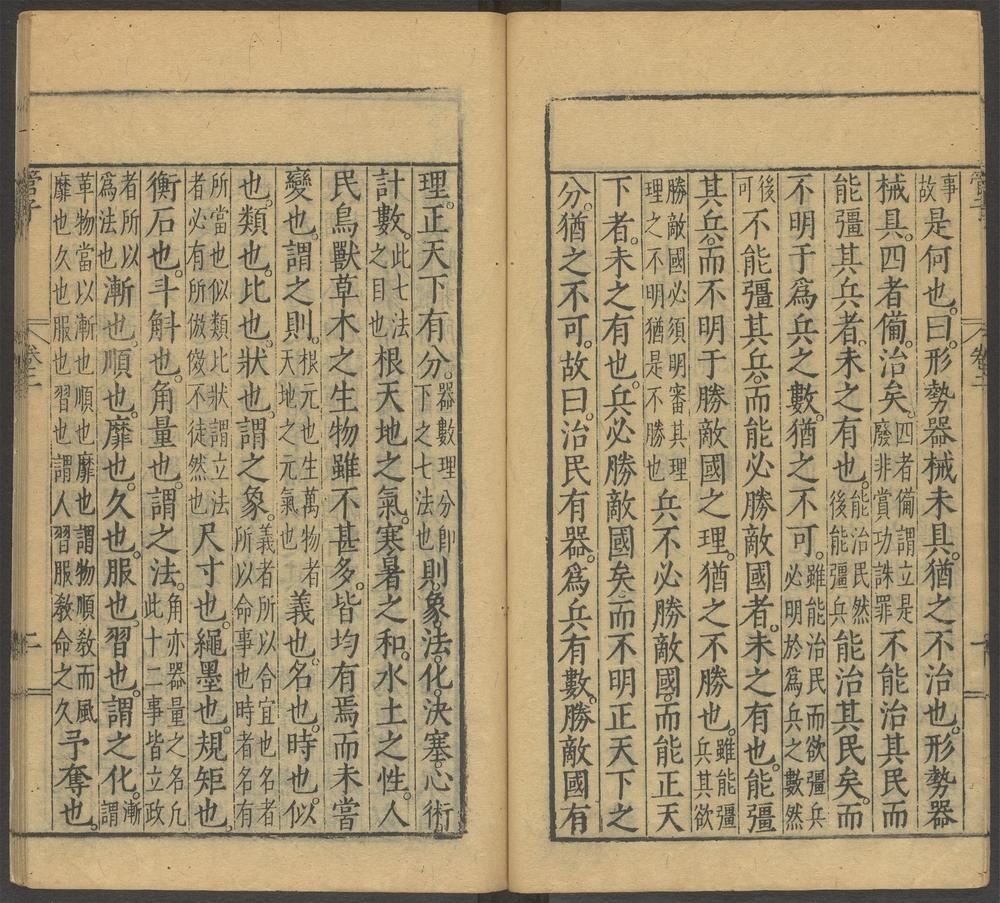 事故是何也曰形勢器械未具猶之不治也形勢器
械具四者備治矣四者備謂立是廢非賞功誅罪不能治其民而
能彊其兵者未之有也能治民然後能彊兵能治其民矣而
不明于爲兵之數猶之不可雖能治民而欲彊兵必明於爲兵之數然
後可不能彊其兵而能必勝敵國者未之有也能彊
其兵而不明于勝敵國之理猶之不勝也雖能彊兵其欲
勝敵國必須明審其理理之不明猶是不勝也兵不必勝敵國而能正天
下者未之有也兵必勝敵國矣而不明正天下之
分猶之不可故曰治民有器爲兵有數勝敵國有
理正天下有分器數理分卽下之七法也則象法化決塞心術
計數此七法之目也根天地之氣寒暑之和水土之性人
民鳥獸草木之生物雖不甚多皆均有焉而未嘗
變也謂之則根元也生萬物者天地之元氣也義也名也時也似
也類也比也狀也謂之象義者所以合宜也名者所以命事也時者名有
所當也似類比狀謂立法者必有所倣傚不徒然也尺寸也繩墨也規矩也
衡石也斗斛也角量也謂之法角亦器量之名凡此十二事皆立政
者所以爲法也漸也順也靡也久也服也習也謂之化漸謂
革物當以漸也順也靡也謂物順敎而風靡也久也服也習也謂人習服敎命之久予奪也
管子
卷二
二
卷二